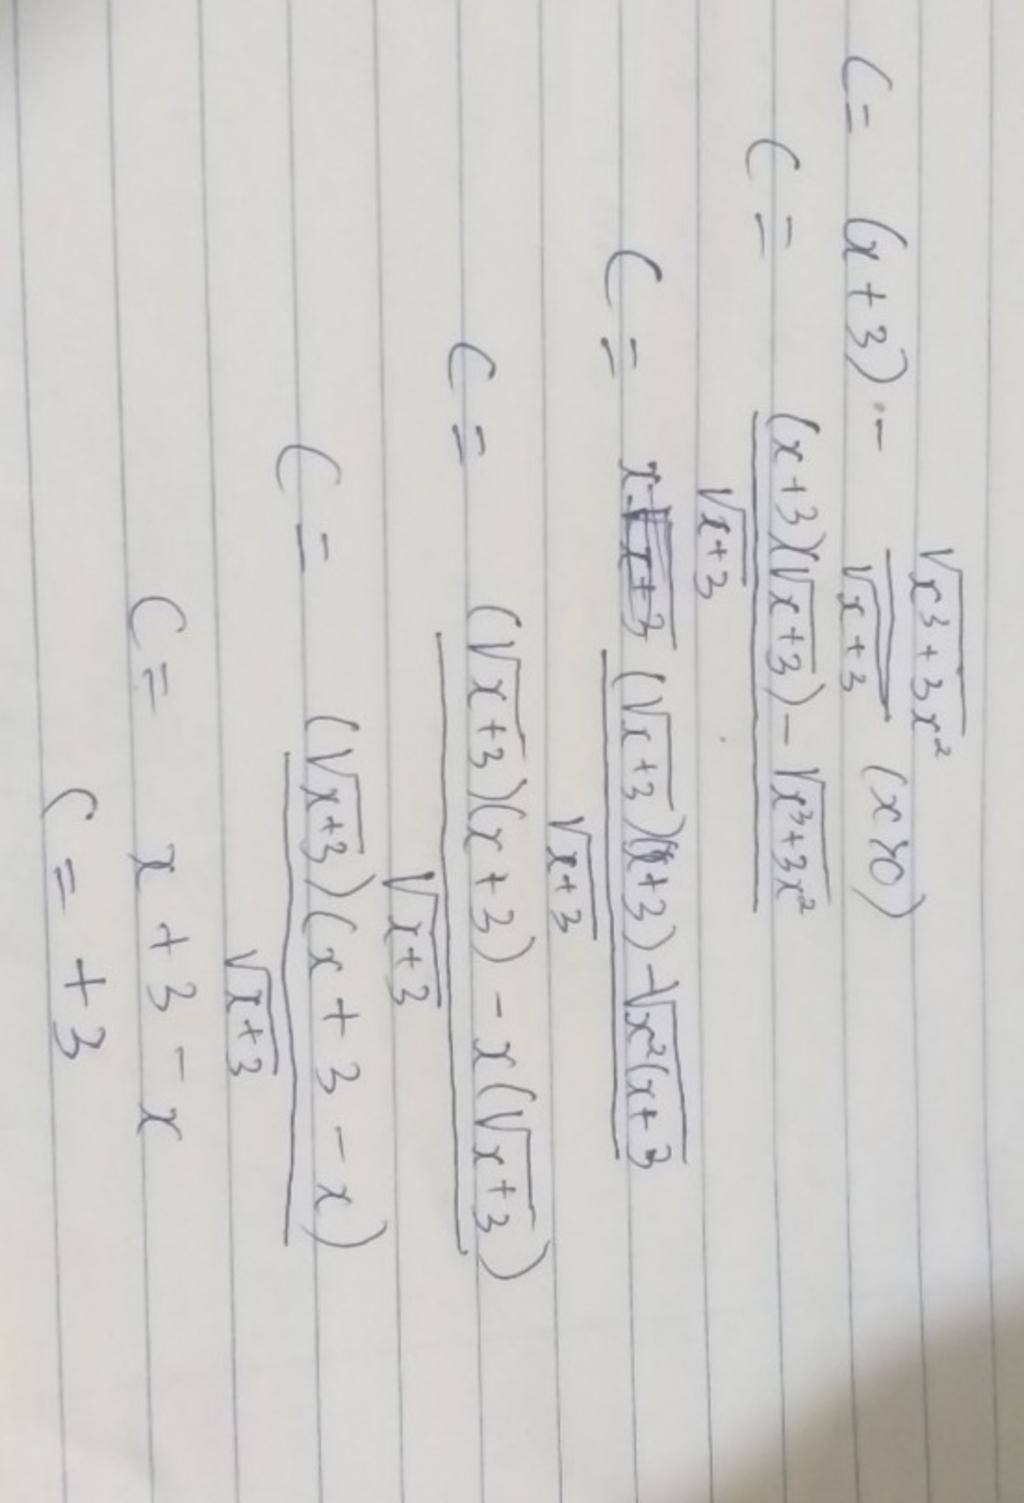 C = (x + 3) - √x³ + 3x² / √x + 3 (x > 0)
C = (x + 3)(√x + 3) - √x³ + 3x² / √x + 3
C = (√x + 3)(x + 3) - √x²(x + 3 / √x + 3
C = (√x + 3)(x + 3) - x(√x + 3) / √x + 3
C = (√x + 3)(x + 3 - x) / √x + 3
C = x + 3 - x
C = + 3